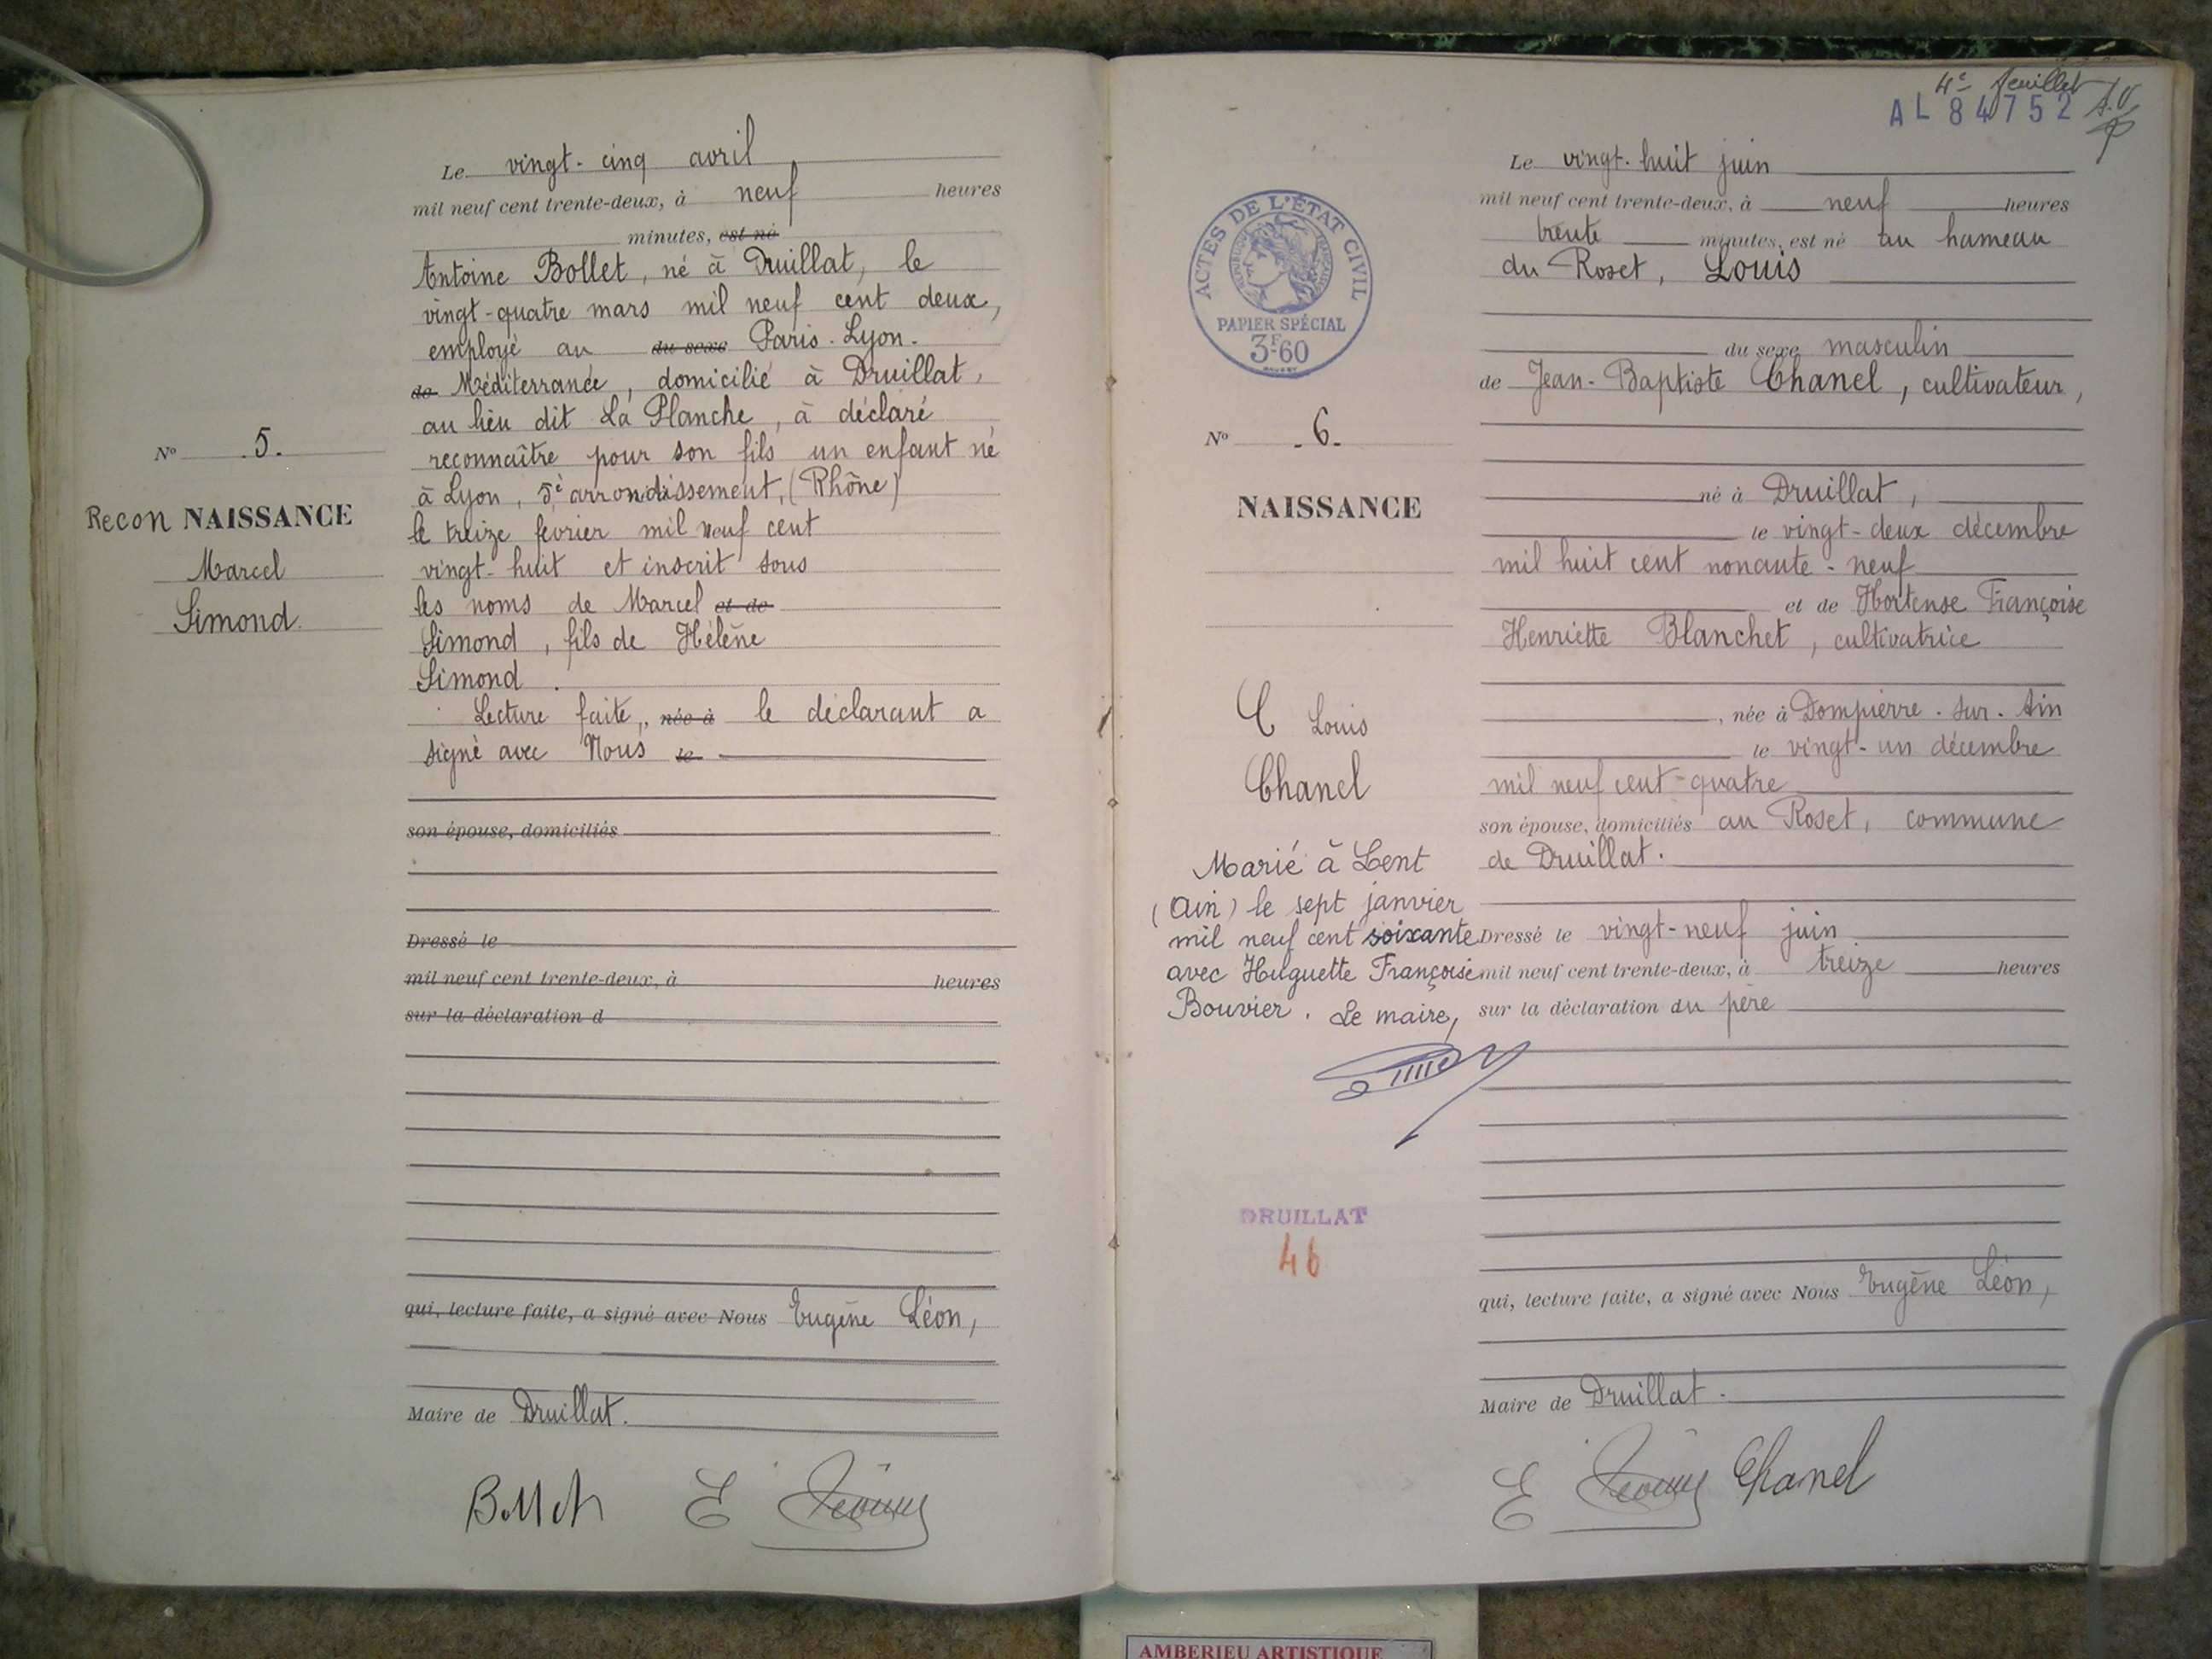 Le vingt-cinq avril
mil neuf cent trente-deux, à neuf heures
minutes, est né
Antoine Bollet, né à Druillat, le
vingt-quatre mars mil neuf cent deux,
employé au du sexe Paris-Lyon-
de Méditerranée, domicilié à Druillat,
au lieu dit La Planche, à déclaré
reconnaître pour son fils un enfant né
à Lyon, 5è arrondissement, (Rhône)
le treize février mil neuf cent
vingt-huit et inscrit sous
les noms de Marcel et de
Simond, fils de Hélène
Simond.
Lecture faite, née à le déclarant a
signé avec Nous le
son épouse, domiciliés
Dressé le
mil neuf cent trente-deux, à heures
sur la déclaration d
qui, lecture faite, a signé avec Nous Eugène Léon,
Maire de Druillat.
Bollet E Léon
No 5.
Recon NAISSANCE
Marcel
Simond
4e feuillet
AL 84752
ACTES DE L'ÉTAT CIVIL
RÉPUBLIQUE FRANÇAISE
PAPIER SPÉCIAL
3F60
No 6.
NAISSANCE
C Louis
Chanel
Marié à Lent
(Ain) le sept janvier
mil neuf cent soixante
avec Huguette Françoise
Bouvier. Le maire,
DRUILLAT
46
Le vingt-huit juin
mil neuf cent trente-deux, à neuf heures
trente minutes, est né au hameau
du Roset, Louis
du sexe masculin
de Jean-Baptiste Chanel, cultivateur,
né à Druillat,
le vingt-deux décembre
mil huit cent nonante-neuf
et de Hortense Françoise
Henriette Blanchet, cultivatrice
, née à Dompierre-sur-Ain
le vingt-un décembre
mil neuf cent-quatre
son épouse, domiciliés au Roset, commune
de Druillat.
Dressé le vingt-neuf juin
mil neuf cent trente-deux, à treize heures
sur la déclaration du père
qui, lecture faite, a signé avec Nous Eugène Léon,
Maire de Druillat.
E Léon Chanel
AMBERIEU ARTISTIQUE